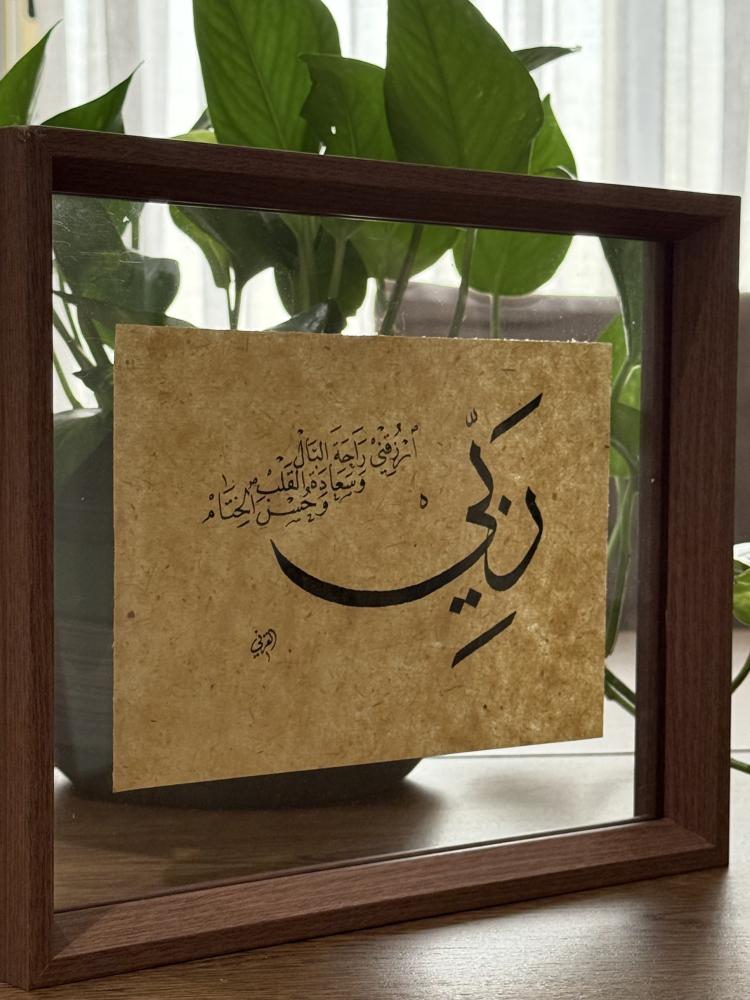 رَبِّي
ٱرْزُقْنِي رَاحَةَ البَالْ
وَسَعَادَةَ القَلْبْ
وَحُسْنَ الخِتَامْ